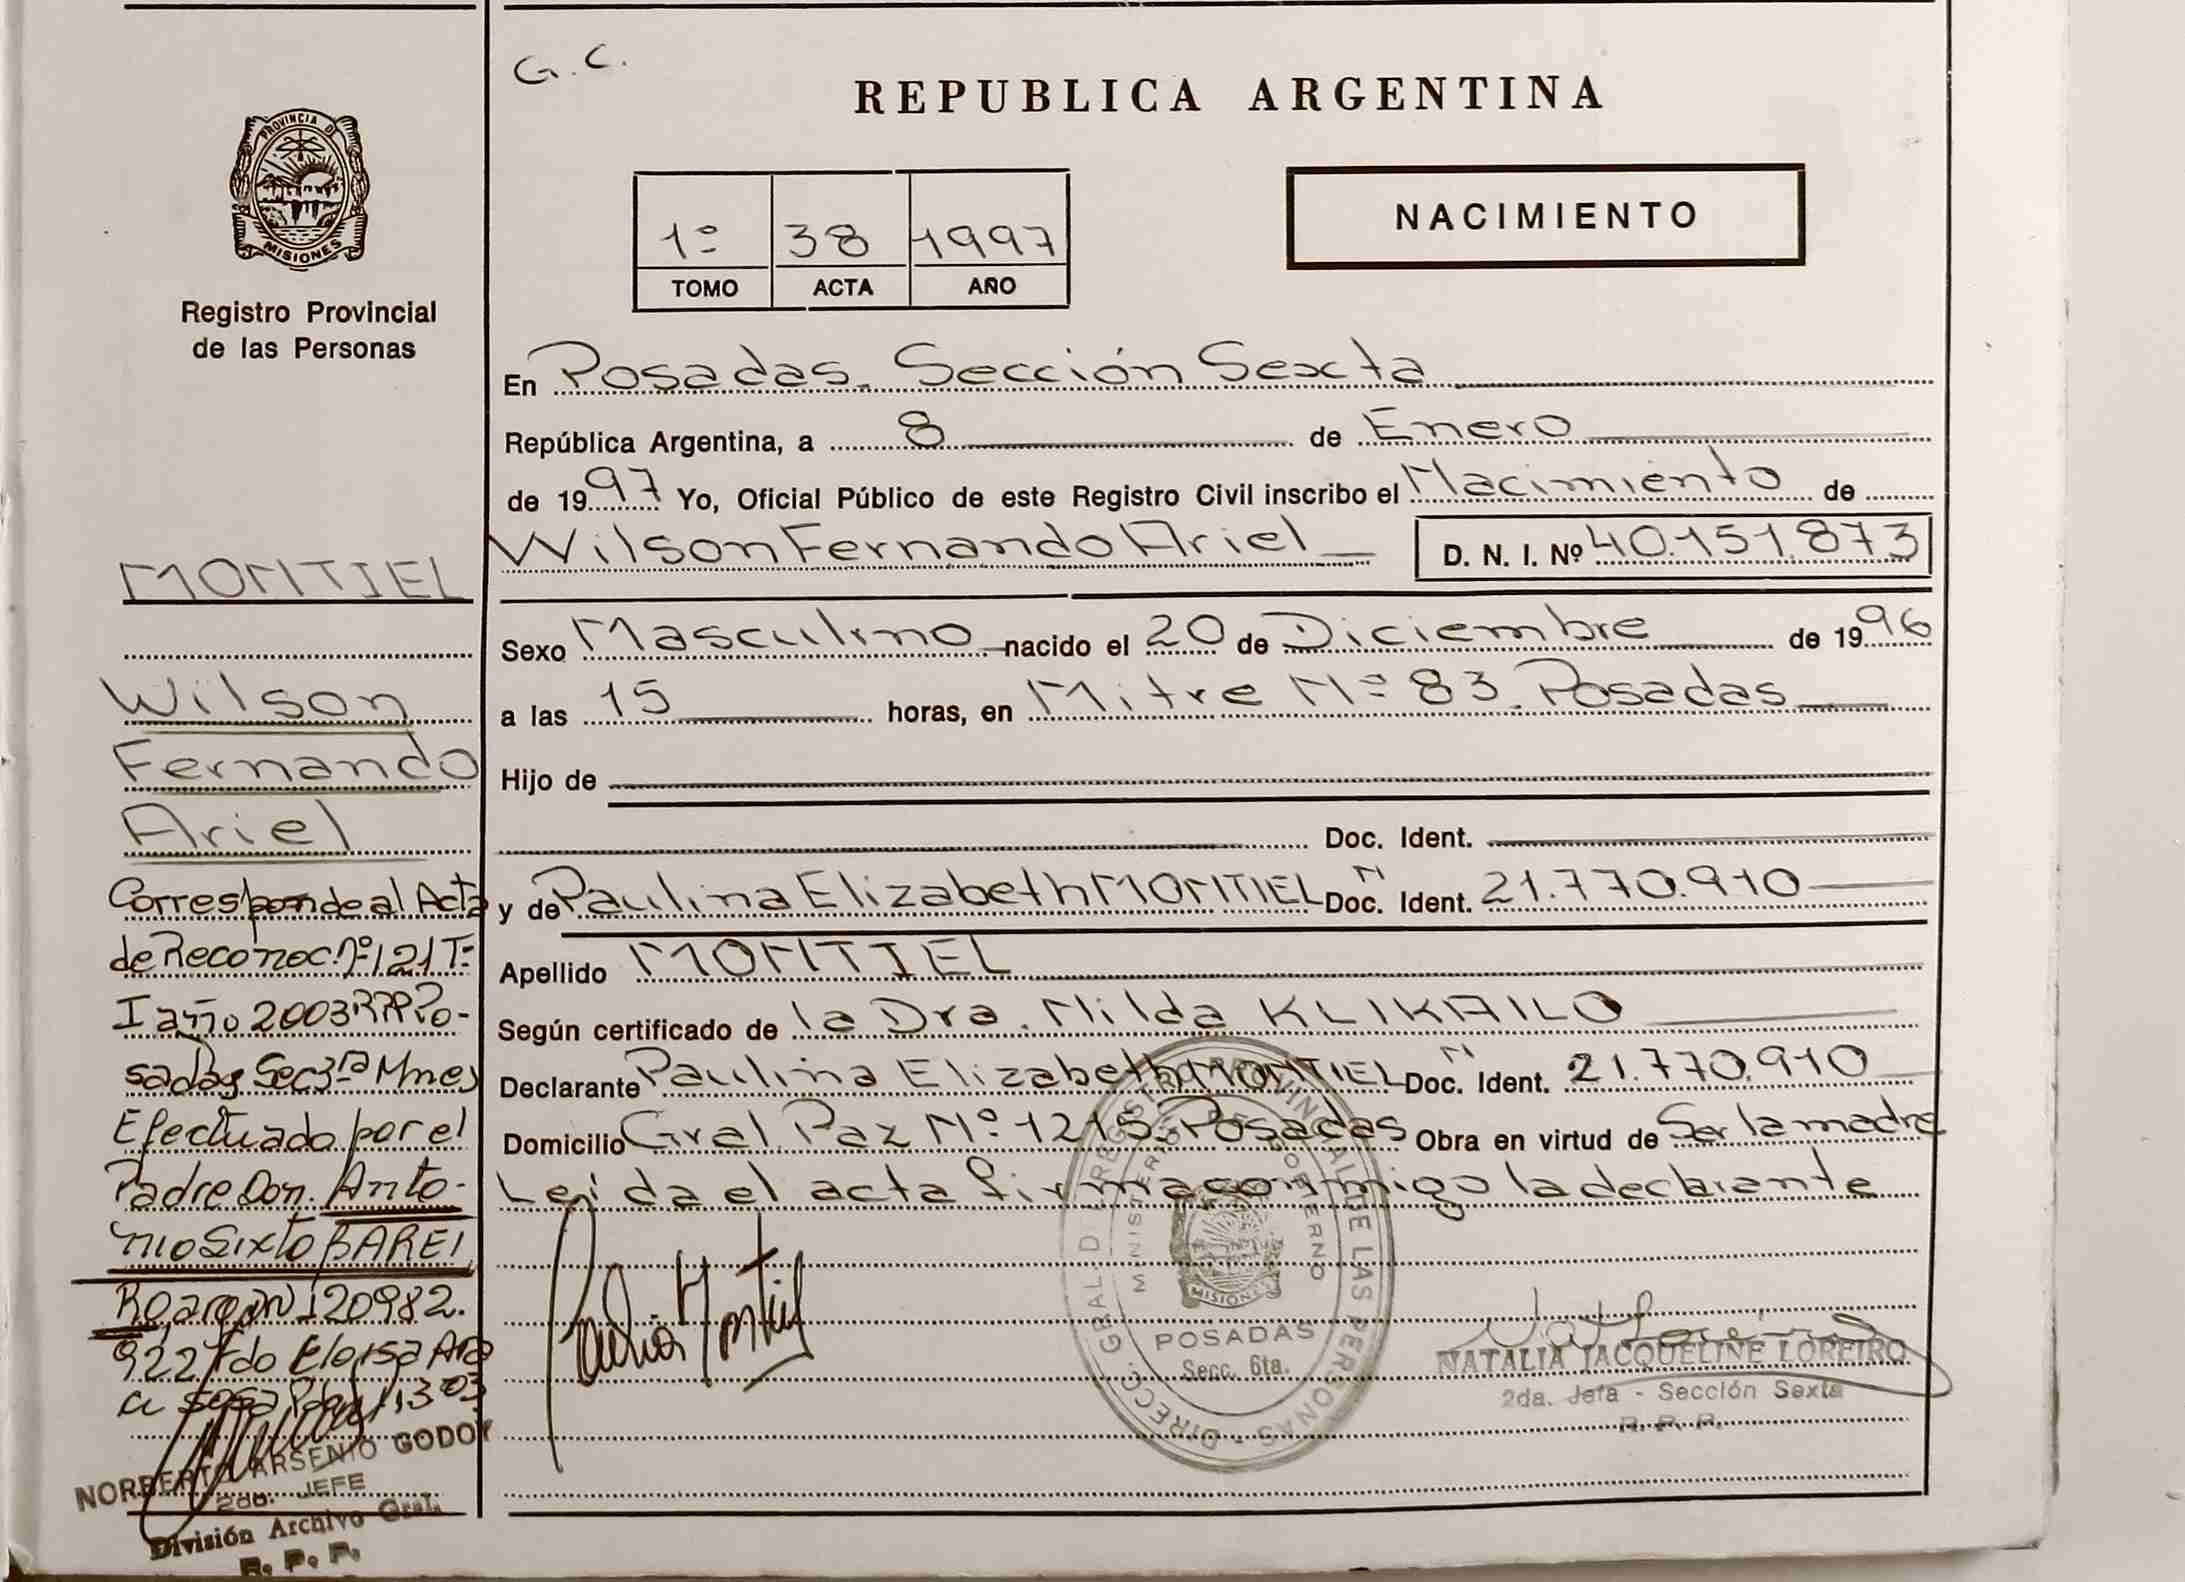 G. C.
REPUBLICA ARGENTINA
PROVINCIA DE
MISIONES
Registro Provincial
de las Personas
1º 38 1997
TOMO ACTA AÑO
NACIMIENTO
En Posadas. Sección Sexta
República Argentina, a 8 de Enero
de 1997 Yo, Oficial Público de este Registro Civil inscribo el Nacimiento de
Wilson Fernando Ariel D. N. I. Nº 40.151.873
Sexo Masculino nacido el 20 de Diciembre de 1996
a las 15 horas, en Mitre Nº 83. Posadas
Hijo de
Doc. Ident.
y de Paulina Elizabeth MONTIEL Doc. N Ident. 21.770.910
Apellido MONTIEL
Según certificado de la Dra. Nilda KLIKAILO
Declarante Paulina Elizabeth MONTIEL Doc. N Ident. 21.770.910
Domicilio Gral. Paz Nº 1215. Posadas Obra en virtud de Ser la madre
Leída el acta firma conmigo la declarante
MONTIEL
Wilson
Fernando
Ariel
Corresponde al Acta
de Reconoc. Nº 121 Tº
I año 2003 RPP Po-
sadas Sec 3ra Mnes
Efectuado por el
Padre Don. Anto-
nio Sixto BAREI
922 Fdo Eloisa
NORBERTO ARSENIO GODOY
2do. JEFE
División Archivo Gral.
R. P. P.
DIRECC. GRAL. DEL REGISTRO PROVINCIAL DE LAS PERSONAS
MINISTERIO DE GOBIERNO
MISIONES
POSADAS
Secc. 6ta.
NATALIA JACQUELINE LOREIRO
2da. Jefa - Sección Sexta
R. P. P.